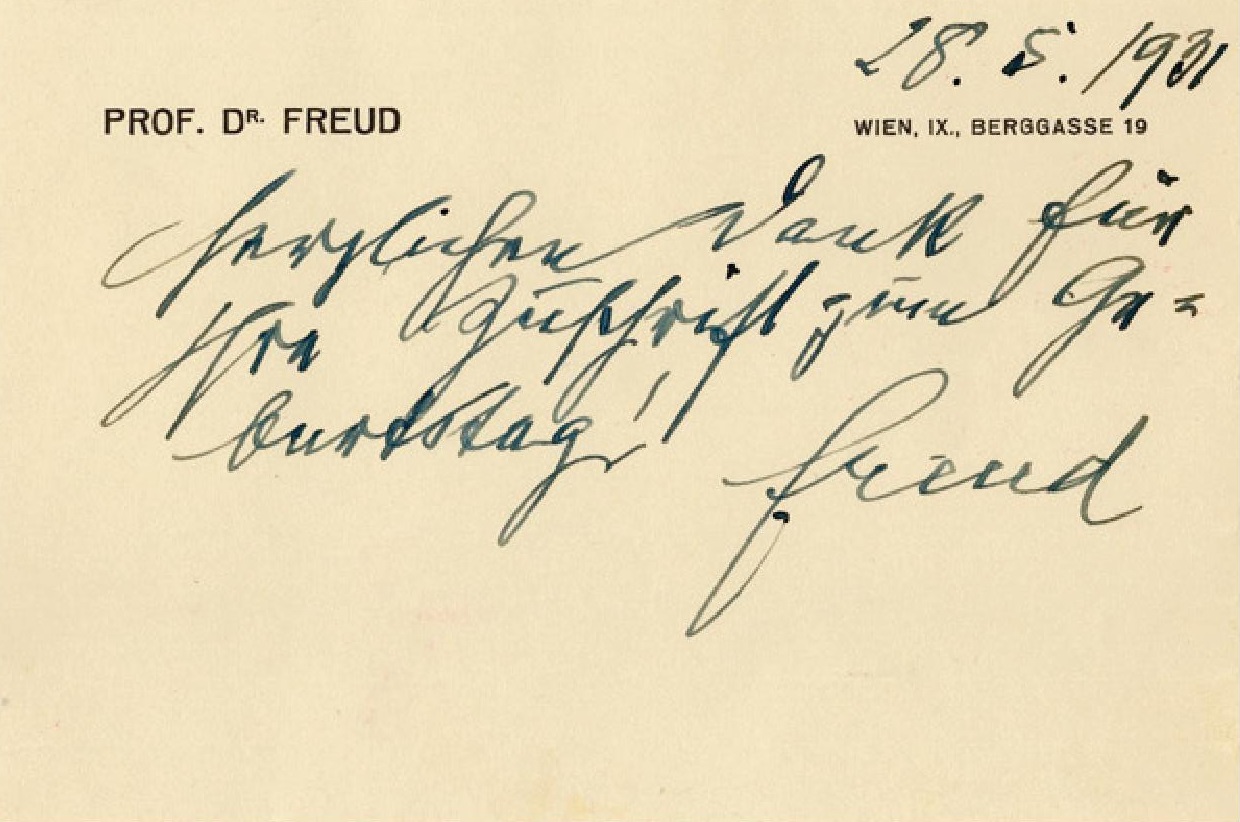 28. 5. 1931
PROF. DR. FREUD
WIEN, IX., BERGGASSE 19
Herzlichen Dank für
Ihre Zuschrift zum Ge=
burtstag!
Freud